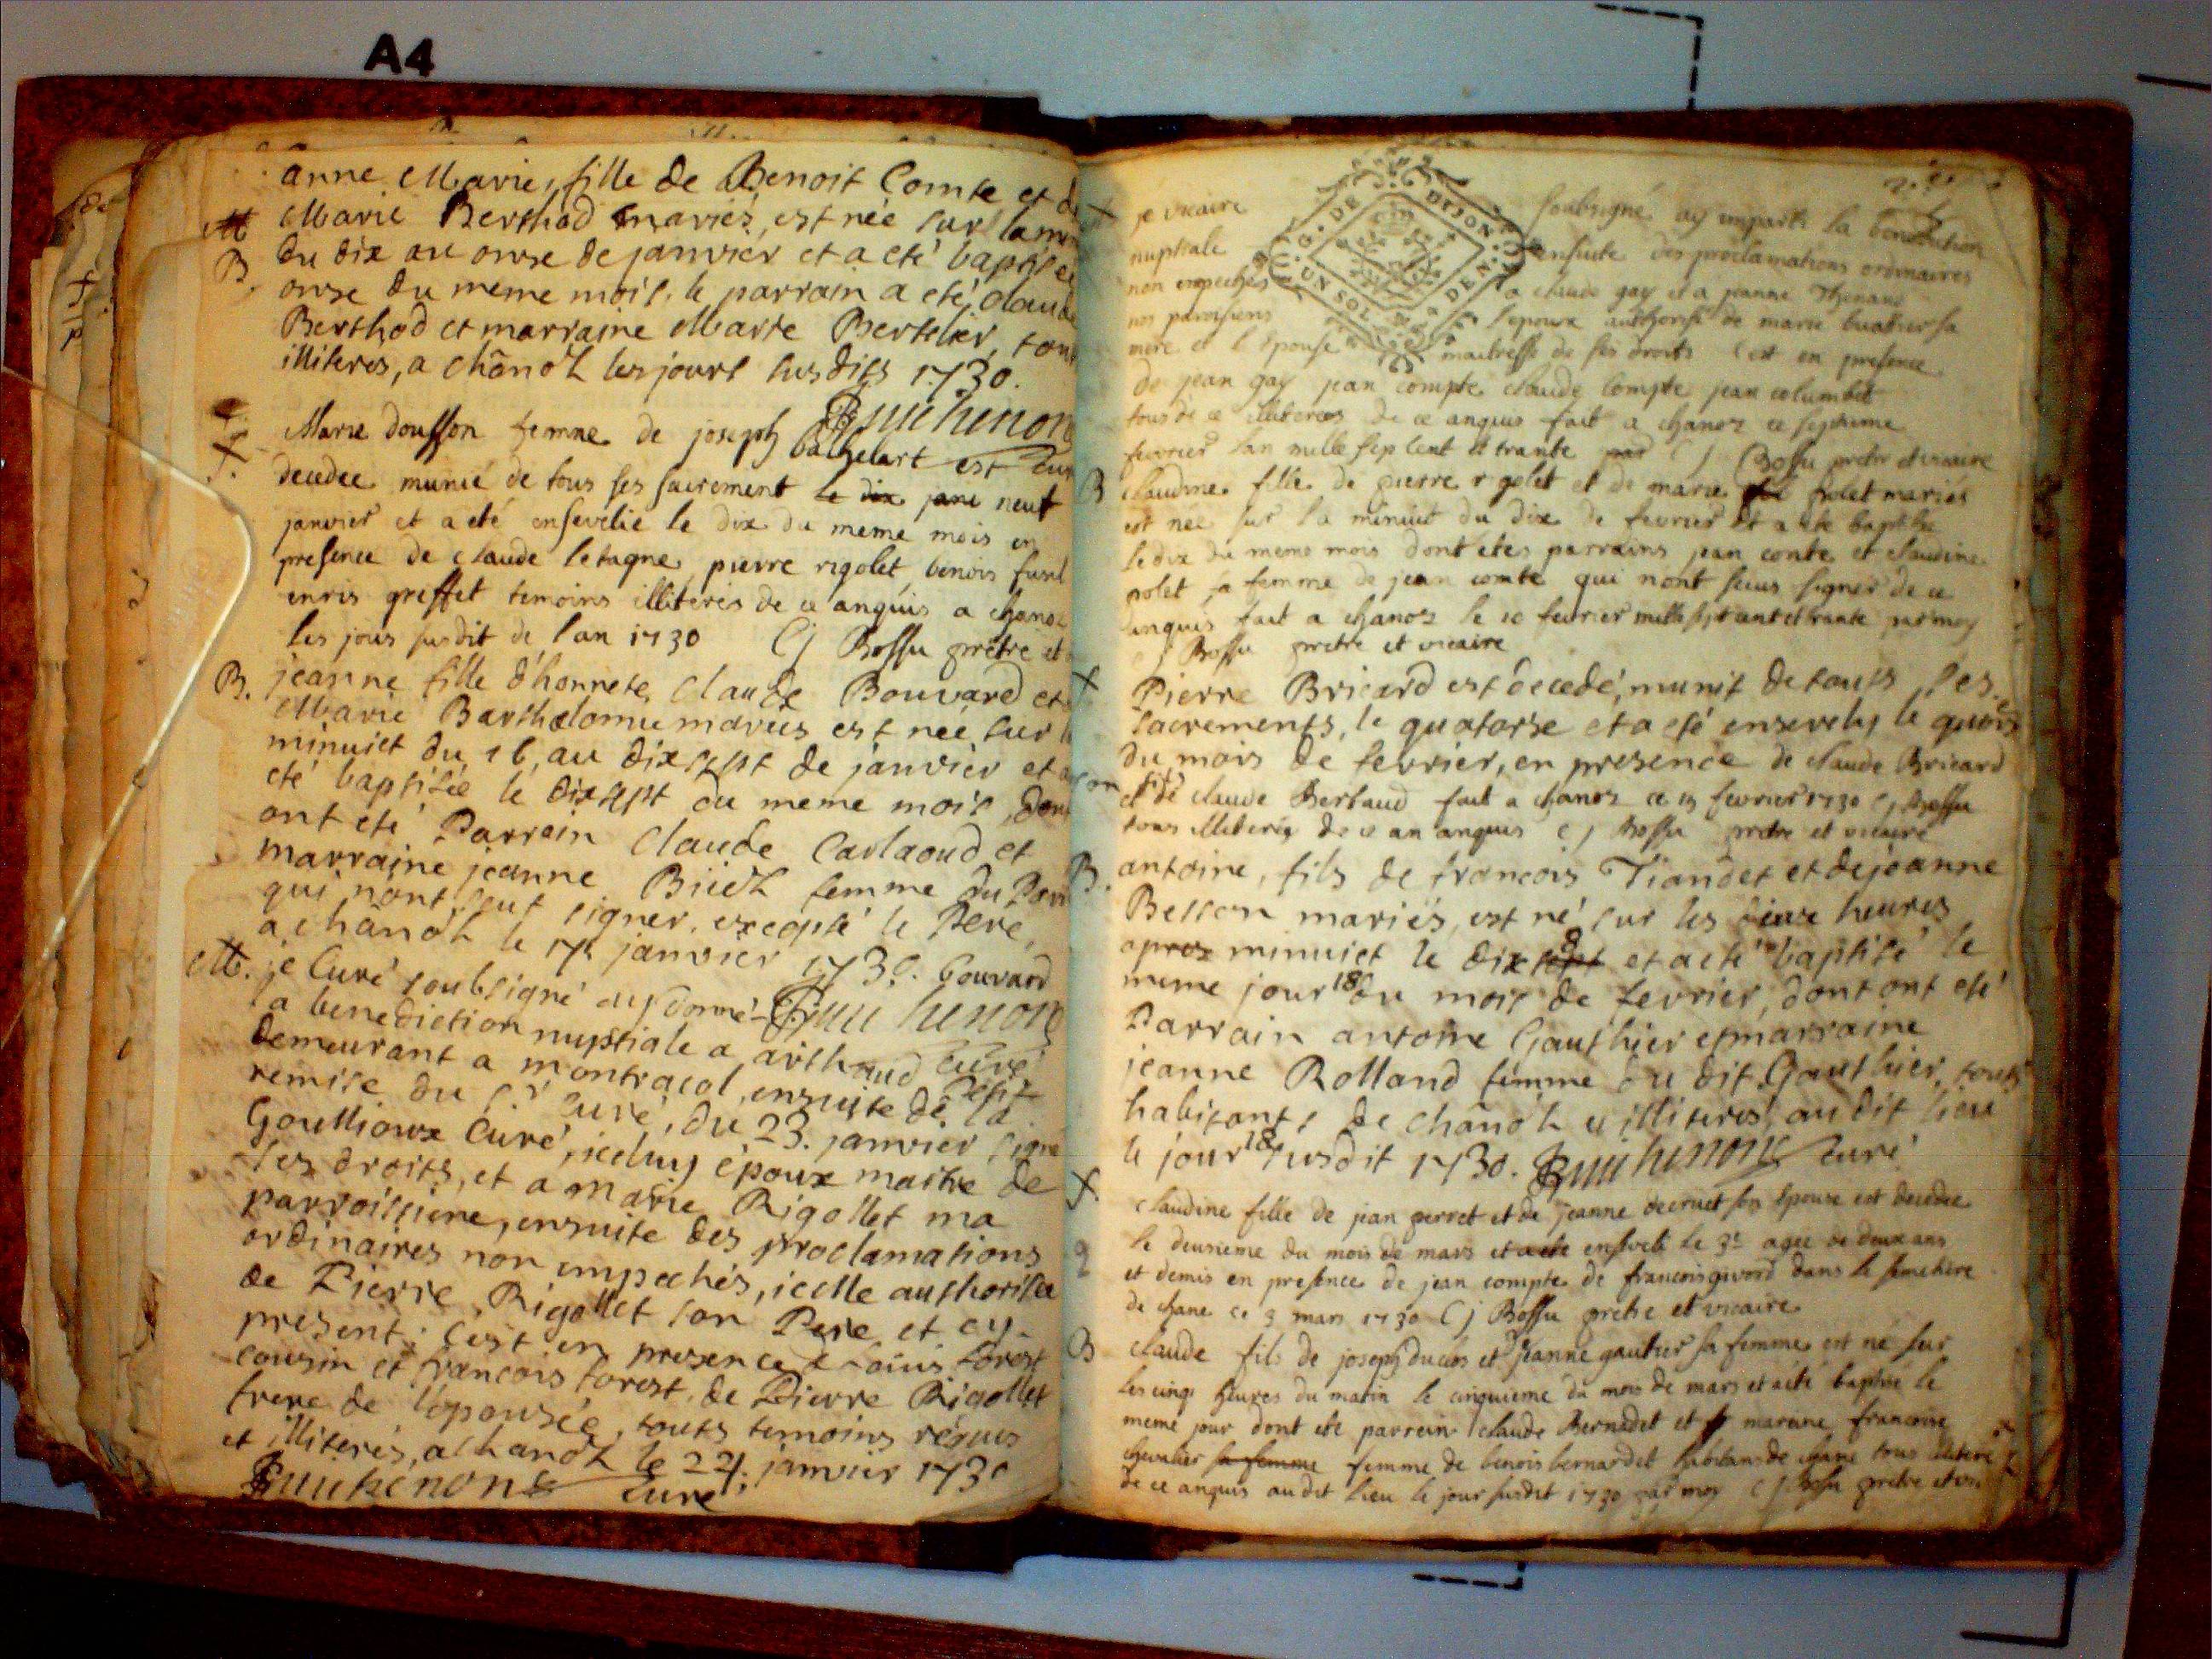 A4
anne Marie, fille de Benoit Comte et de
M Marie Berthod mariés, est née sur la
B. du dix au onse de janvier et a eté baptisée
onse du meme mois. le parrain a eté Claude
Berthod et marraine Marie Bertelier, tous
illiteres, a chânoz les jours susdits 1730.
Guichenon
Marie dousson femme de joseph bachelart est
decedee munie de tous ses sacrement le dix janv neuf
janvier et a eté ensevelie le dix du meme mois en
presence de claude letagne, pierre rigolet, benois
enris greffet temoins illiterés de ce anquis a chanoz
les jours susdit de l'an 1730 Cj Bossu prêtre et
B. jeanne fille d'honnete Claude Bouvard et
Marie Bartholomu mariés est née, sur
minuict du 16, au dix sept de janvier et a
eté baptisée le dix sept du meme mois, dont
ont eté Parrain Claude Carlaoud et
marraine jeanne femme du
qui n'ont seut signer, excepté le Pere,
a chânoz le 17 janvier 1730. bouvard
M. je Curé soubsigné ay donné Guichenon
la benediction nuptiale a arthaud curé
demeurant a montracol, ensuite de la
remise du sr curé, du 23. janvier signé
Goullioux Curé, iceluy époux maitre de
ses droits, et a marie Rigollet ma
parroissiene, ensuite des proclamations
ordinaires non empechés, icelle authorisée
de Pierre Rigollet son Pere, et cy
present; c'est en presence de Louis forest
cousin et francois forest, de Pierre Rigollet
frere de l'epousée, touts temoins requis
et illiterés, a chanoz le 24. janvier 1730
Guichenon Curé
je vicaire soubsigné ay imparti la benediction
nuptiale ensuite des proclamations ordinaires
non empechés a claude gay et a jeanne Thenaud
nos paroisiens l'epoux authorisé de marie buathier sa
mere et l'epouse maitresse de ses droits c'est en presence
G. DE DIJON
UN SOL DEN.
de jean gay jean compte claude compte jean columbet
tous de ce illiteres de ce anquis fait a chanoz ce septieme
fevrier l'an mille sep cent et trante par Cj Bossu pretre et vicaire
B claudine fille de pierre rigolet et de marie polet mariés
est nee sur la minuit du dix de fevrier et a ete baptise
le dix du meme mois dont etes parrains jean conte et claudine
polet sa femme de jean comte qui n'ont seus signer de ce
anquis fait a chanoz le 10 fevrier mille sept cent et trante par moy
Cj Bossu pretre et vicaire
Pierre Bricard est decedé, munit de touts ses
sacrements, le quatorse et a eté ensevely le quins
du mois de fevrier, en presence de claude Bricard
et de claude Bertaud fait a chanoz ce 15 fevrier 1730 Cj Bossu
tous illiteres de ce an anquis Cj Bossu pretre et vicaire
B. antoine, fils de francois Tiandet et de jeanne
Besson mariés, est né sur les heures
apres minuict le dix sept 8 et a eté baptisé le
meme jour 18 du mois de fevrier, dont ont eté
Parrain antoine Gauthier et marraine
jeanne Rolland femme du dit Gauthier, touts
habitants de chânoz illiteres, au dit lieu
le jour 18 susdit 1730. Guichenon Curé
claudine fille de jean perret et de jeanne decruet son epouse est decedee
le deusieme du mois de mars et a ete enseveli le 3e agee de deux ans
et demis en presence de jean compte de francois givord dans le semetiere
de chane ce 3 mars 1730 Cj Bossu pretre et vicaire
B claude fils de joseph duclos et jeanne gautier sa femme est né sur
les cinq heures du matin le cinquieme du mois de mars et a eté baptise le
meme jour dont ete parrein claude Bernadet et mareine francoise
chevalier sa femme femme de benois bernardet habitans de chane tous illitere
de ce anquis au dit lieu le jour susdit 1730 par moy Cj Bossu pretre et vic